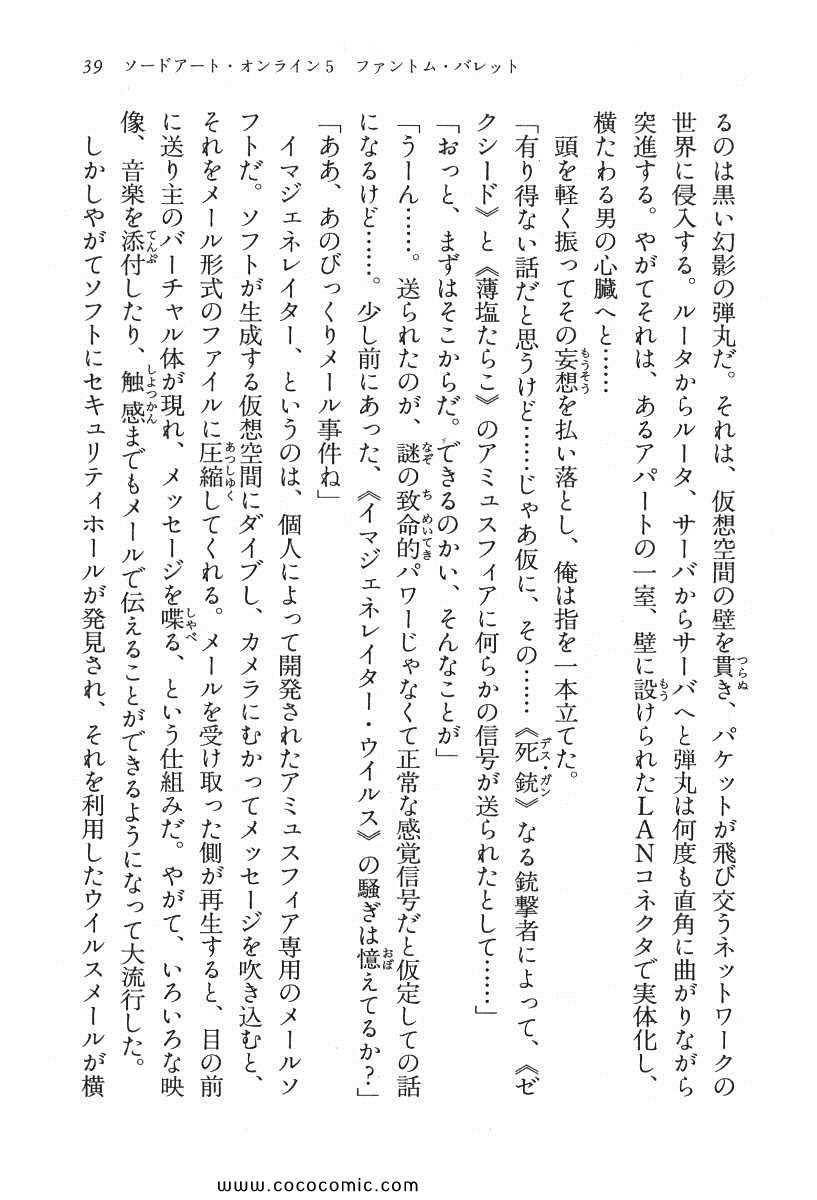 39 ソードアート・オンライン5 ファントム・バレット
るのは黒い幻影の弾丸だ。それは、仮想空間の壁を貫き、パケットが飛び交うネットワークの
世界に侵入する。ルータからルータ、サーバからサーバへと弾丸は何度も直角に曲がりながら
突進する。やがてそれは、あるアパートの一室、壁に設けられたLANコネクタで実体化し、
横たわる男の心臓へと……
　頭を軽く振ってその妄想を払い落とし、俺は指を一本立てた。
「有り得ない話だと思うけど……じゃあ仮に、その……《死銃》なる銃撃者によって、《ゼ
クシード》と《薄塩たらこ》のアミュスフィアに何らかの信号が送られたとして……」
「おっと、まずはそこからだ。できるのかい、そんなことが」
「うーん……。送られたのが、謎の致命的パワーじゃなくて正常な感覚信号だと仮定しての話
になるけど……。少し前にあった、《イマジェネレイター・ウイルス》の騒ぎは憶えてるか？」
「ああ、あのびっくりメール事件ね」
　イマジェネレイター、というのは、個人によって開発されたアミュスフィア専用のメールソ
フトだ。ソフトが生成する仮想空間にダイブし、カメラにむかってメッセージを吹き込むと、
それをメール形式のファイルに圧縮してくれる。メールを受け取った側が再生すると、目の前
に送り主のバーチャル体が現れ、メッセージを喋る、という仕組みだ。やがて、いろいろな映
像、音楽を添付したり、触感までもメールで伝えることができるようになって大流行した。
　しかしやがてソフトにセキュリティホールが発見され、それを利用したウイルスメールが横
www.cococomic.com